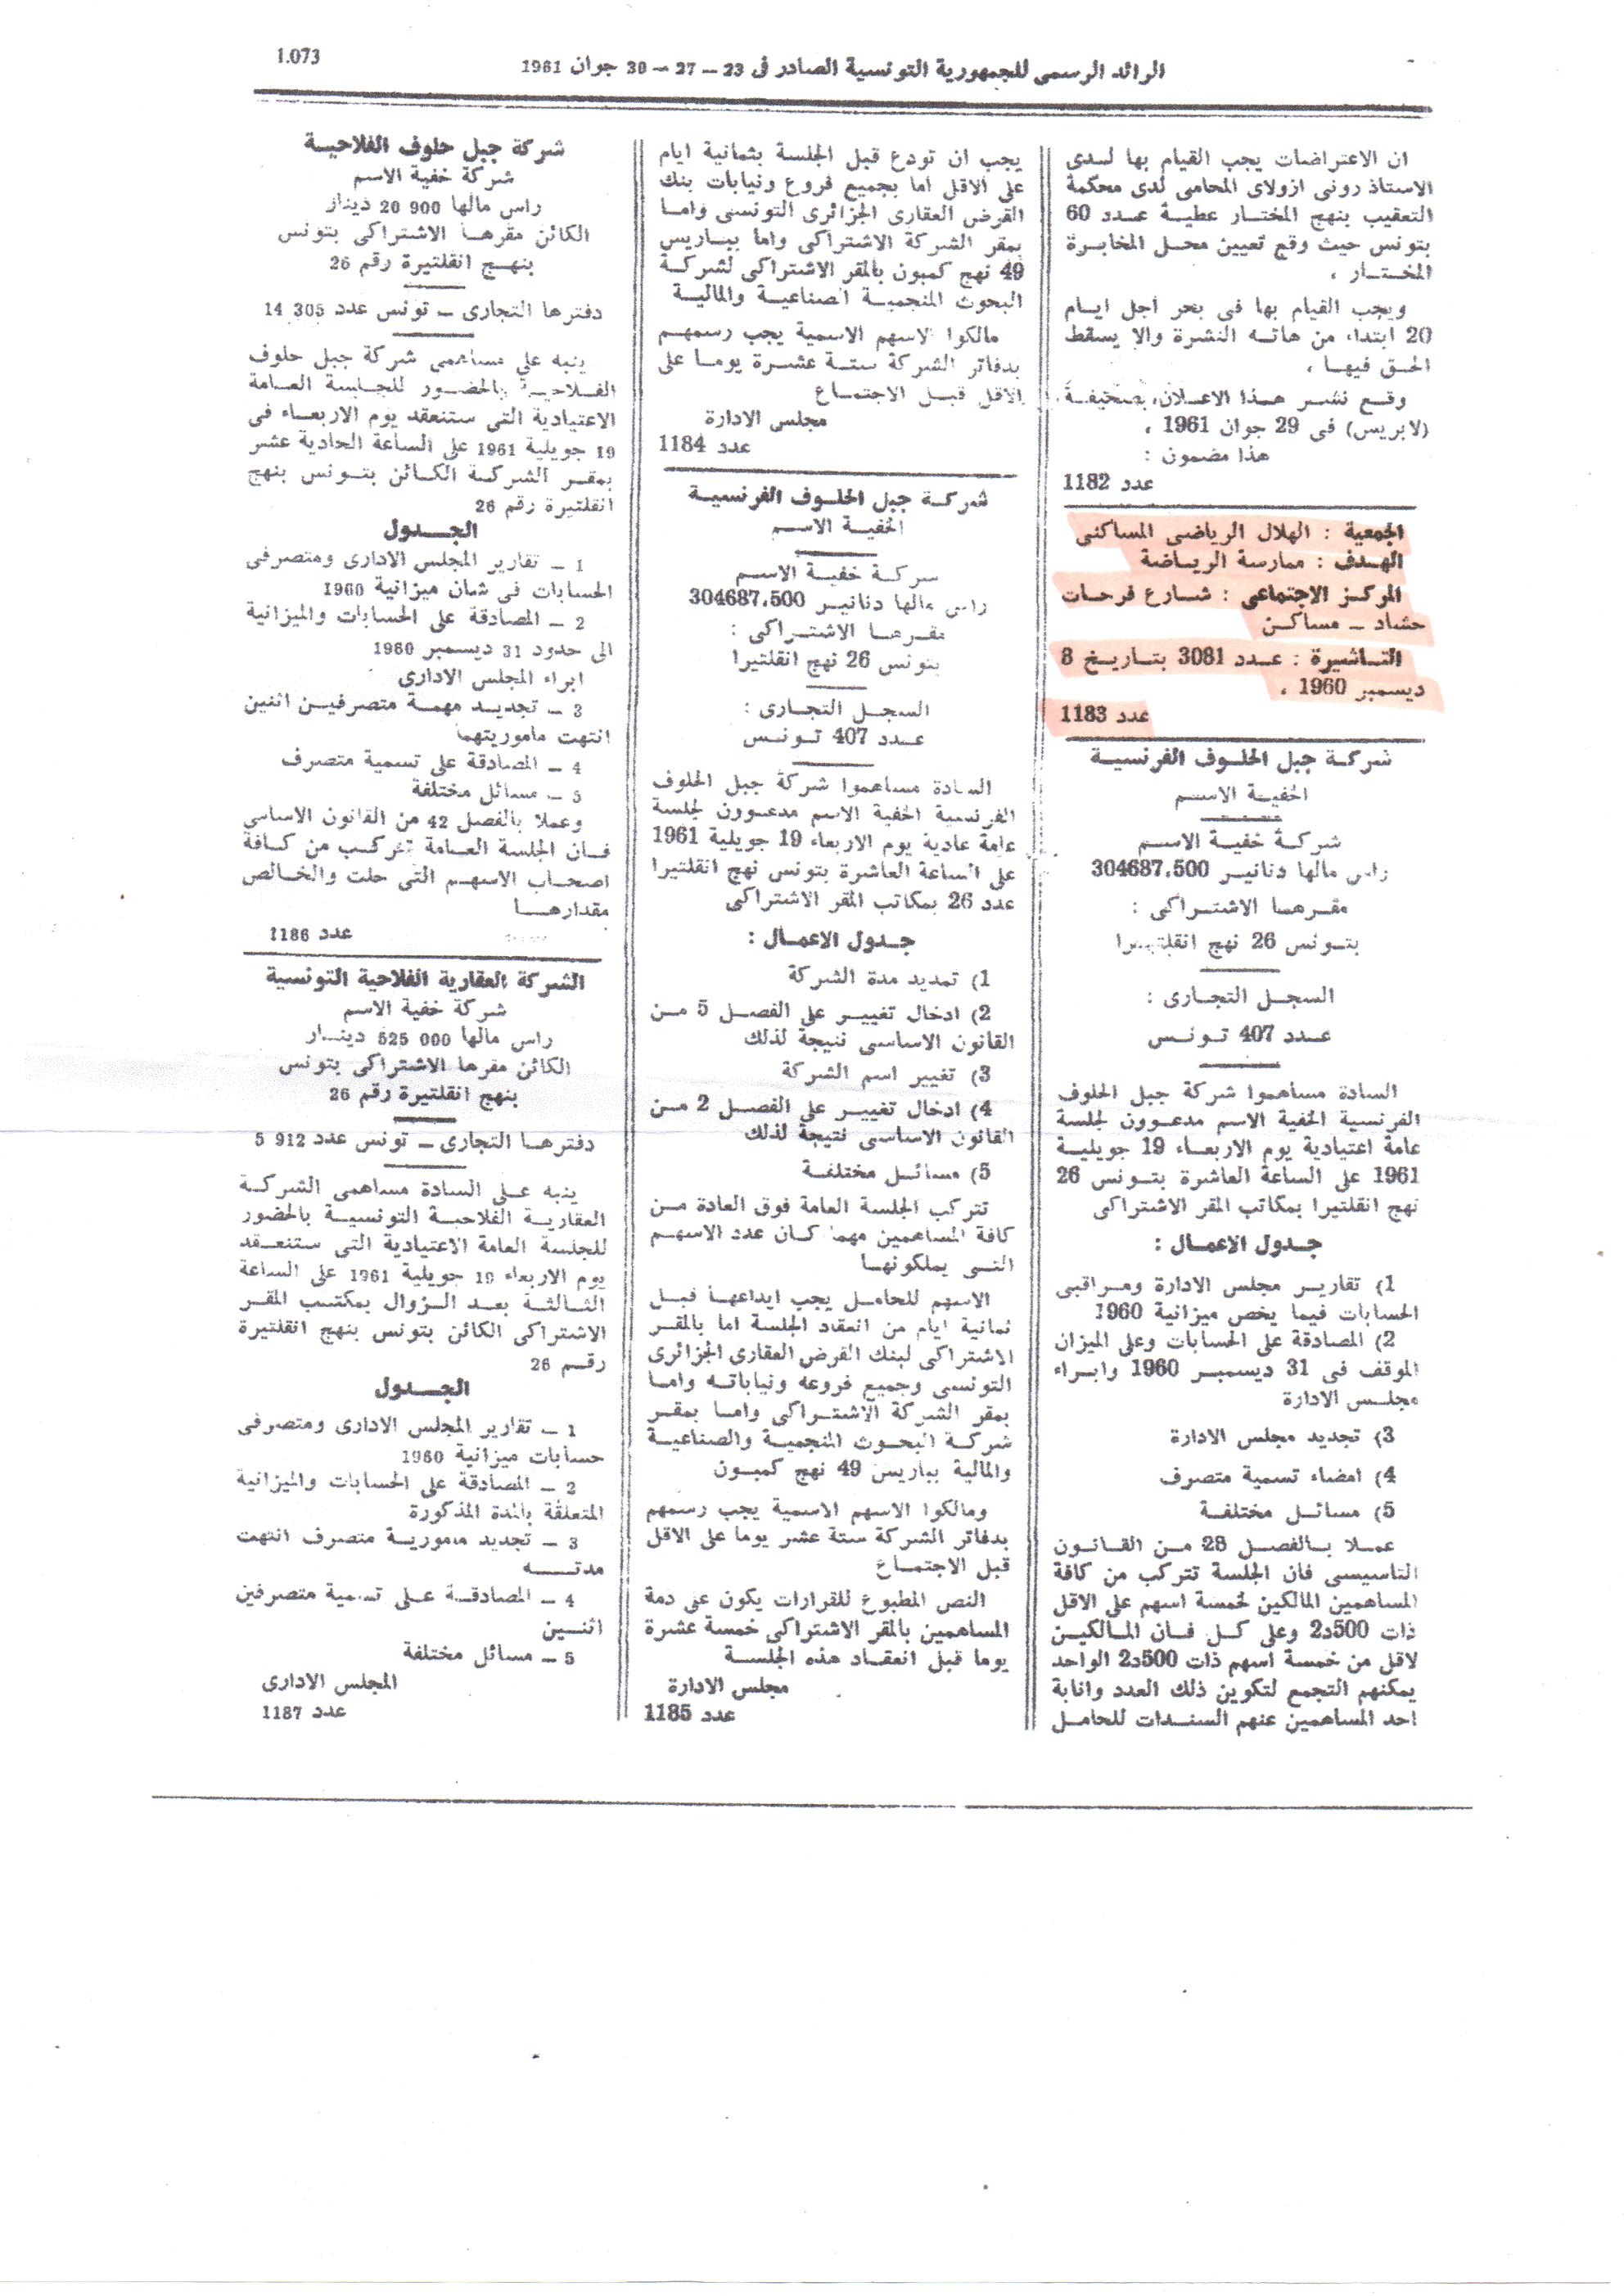 1.073
الرائد الرسمى للجمهورية التونسية الصادر فى 23 ــ 27 ــ 30 جوان 1961
ان الاعتراضات يجب القيام بها لـدى
الاستاذ رونى ازولاى المحامى لدى محكمة
التعقيب بنهج المختـار عطيـة عـدد 60
بتونس حيث وقع تعيين محـل المخابـرة
المختـار ،
ويجب القيام بها فى بحر اجل ايـام
20 ابتداء من هاتـه النشرة والا يسقط
الحـق فيهـا ،
وقـع نشـر هـذا الاعـلان بصحيفـة
(لابريس) فى 29 جوان 1961 ،
هذا مضمون :
عدد 1182
الجمعية : الهلال الرياضى المساكنى
الهـدف : ممارسة الريـاضة
المركـز الاجتماعى : شـارع فرحـات
حشاد ــ مساكـن
التـاشيرة : عـدد 3081 بتـاريـخ 8
ديسمبر 1960 ،
عدد 1183
شركـة جبل الحلـوف الفرنسيـة
الخفيـة الاسـم
شركـة خفيـة الاسـم
راس مالها دنانيـر 304687،500
مقـرهـا الاشتـراكى :
بتـونس 26 نهج انقلتيـرا
السجـل التجـارى :
عـدد 407 تـونـس
السادة مساهموا شركة جبل الحلوف
الفرنسية الخفية الاسم مدعـوون لجلسة
عامة اعتيادية يوم الاربعـاء 19 جويليـة
1961 على الساعة العاشرة بتـونس 26
نهج انقلتيرا بمكاتب المقر الاشتراكى
جـدول الاعمـال :
1) تقاريـر مجلس الادارة ومـراقبى
الحسابات فيما يخص ميزانية 1960
2) المصادقة على الحسابات وعلى الميزان
الموقف فى 31 ديسمبـر 1960 وابـراء
مجلـس الادارة
3) تجديد مجلس الادارة
4) امضاء تسمية متصرف
5) مسائـل مختلفـة
عمـلا بـالفصـل 28 مـن القـانـون
التاسيسى فان الجلسة تتركب من كافة
المساهمين المالكين لخمسة اسهم على الاقل
ذات 500د2 وعلى كـل فـان المـالكيـن
لاقل من خمسة اسهم ذات 500د2 الواحد
يمكنهم التجمع لتكوين ذلك العدد وانابة
احد المساهمين عنهم السنـدات للحامـل
يجب ان تودع قبل الجلسة بثمانية ايام
على الاقل اما بجميع فروع ونيابات بنك
القرض العقارى الجزائرى التونسى وامـا
بمقر الشركة الاشتراكى واما ببـاريس
49 نهج كمبون بالمقر الاشتراكى لشركـة
البحوث المنجميـة الصناعيـة والماليـة
مالكوا الاسهم الاسمية يجب رسمهـم
بدفاتر الشركة ستـة عشـرة يومـا على
الاقل قبـل الاجتمـاع
مجلس الادارة
عدد 1184
شركـة جبل الحلـوف الفرنسيـة
الخفيـة الاسـم
شركـة خفيـة الاسـم
راس مالها دنانيـر 304687،500
مقـرهـا الاشتـراكى :
بتونس 26 نهج انقلتيرا
السجـل التجـارى :
عـدد 407 تـونـس
السادة مساهموا شركة جبـل الحلوف
الفرنسية الخفية الاسم مدعـوون لجلسة
عامة عادية يوم الاربعاء 19 جويلية 1961
على الساعة العاشرة بتونس نهج انقلتيرا
عدد 26 بمكاتب المقر الاشتراكى
جـدول الاعمـال :
1) تمديد مدة الشركة
2) ادخـال تغييـر على الفصـل 5 مـن
القانون الاساسى نتيجة لذلك
3) تغيير اسم الشركة
4) ادخال تغييـر على الفصـل 2 مـن
القانون الاساسى نتيجة لذلك
5) مسائـل مختلفـة
تتركب الجلسة العامة فوق العادة مـن
كافة المساهمين مهما كـان عدد الاسهـم
التـى يملكونهـا
الاسهم للحامـل يجب ايداعهـا قبـل
ثمانية ايام من انعقاد الجلسة اما بالمقـر
الاشتراكى لبنك القرض العقارى الجزائرى
التونسى وجميع فروعه ونياباتـه وامـا
بمقر الشركة الاشتـراكى وامـا بمقـر
شركـة البحـوث المنجميـة والصناعيـة
والمالية بباريس 49 نهج كمبـون
ومالكوا الاسهم الاسمية يجب رسمهم
بدفاتر الشركة ستة عشر يوما على الاقل
قبل الاجتمـاع
النص المطبوع للقرارات يكون على ذمة
المساهمين بالمقر الاشتراكى خمسة عشرة
يوما قبل انعقـاد هذه الجلسـة
مجلس الادارة
عدد 1185
شركة جبل حلوف الفلاحيـة
شركة خفية الاسم
راس مالها 900 20 دينار
الكائن مقرهـا الاشتراكى بتونس
بنهـج انقلتيرة رقم 26
دفترها التجارى ــ تونس عدد 305 14
ينبه على مساهمى شركة جبل حلوف
الفـلاحيـة بالحضور للجلسة العـامة
الاعتيادية التى ستنعقد يوم الاربعـاء فى
19 جويلية 1961 على الساعة الحادية عشر
بمقـر الشركـة الكـائن بتـونس بنهج
انقلتيرة رقم 26
الجـدول
1 ــ تقارير المجلس الادارى ومتصرفى
الحسابات فى شان ميزانية 1960
2 ــ المصادقة على الحسابات والميزانية
الى حدود 31 ديسمبر 1960
ابراء المجلس الادارى
3 ــ تجديـد مهمـة متصرفيـن اثنين
انتهت ماموريتهما
4 ــ المصادقة على تسمية متصرف
5 ــ مسائل مختلفة
وعملا بالفصل 42 من القانون الاساسى
فـان الجلسة العـامة تتركـب من كـافة
اصحـاب الاسهـم التى حلت والخـالص
مقدارهـا
عدد 1186
الشركة العقارية الفلاحية التونسية
شركة خفية الاسم
راس مالها 000 525 دينـار
الكائن مقرها الاشتراكى بتونس
بنهج انقلتيرة رقم 26
دفترهـا التجارى ــ تونس عدد 912 5
ينبه عـلى السادة مساهمى الشركـة
العقاريـة الفلاحيـة التونسيـة بالحضور
للجلسة العامة الاعتيادية التى ستنعـقد
يوم الاربعاء 19 جويلية 1961 على الساعة
الثـالثـة بعـد الـزوال بمكتـب المقـر
الاشتراكى الكائن بتونس بنهج انقلتيرة
رقـم 26
الجـدول
1 ــ تقارير المجلس الادارى ومتصرفى
حسابات ميزانية 1960
2 ــ المصادقة على الحسابات والميزانية
المتعلقة بالمدة المذكورة
3 ــ تجديـد مامورية متصرف انتهت
مدتـه
4 ــ المصادقـة عـلى تسمية متصرفين
اثنـين
5 ــ مسائل مختلفة
المجلس الادارى
عدد 1187